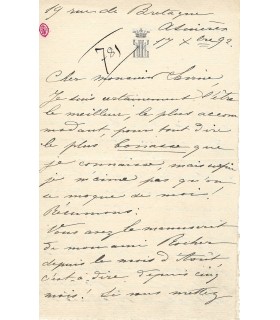 19 rue de Bretagne
Asnières
17 Xbre 92.
781
Cher monsieur
Je suis certainement l'être
le meilleur, le plus accom
modant, pour tout dire
le plus bonasse que
je connaisse, mais enfin
je n'aime pas qu'on
se moque de moi!
Résumons:
Vous avez le manuscrit
de mon ami Rocher
depuis le mois d'Août
c'est à dire depuis cinq
mois! Si vous mettez